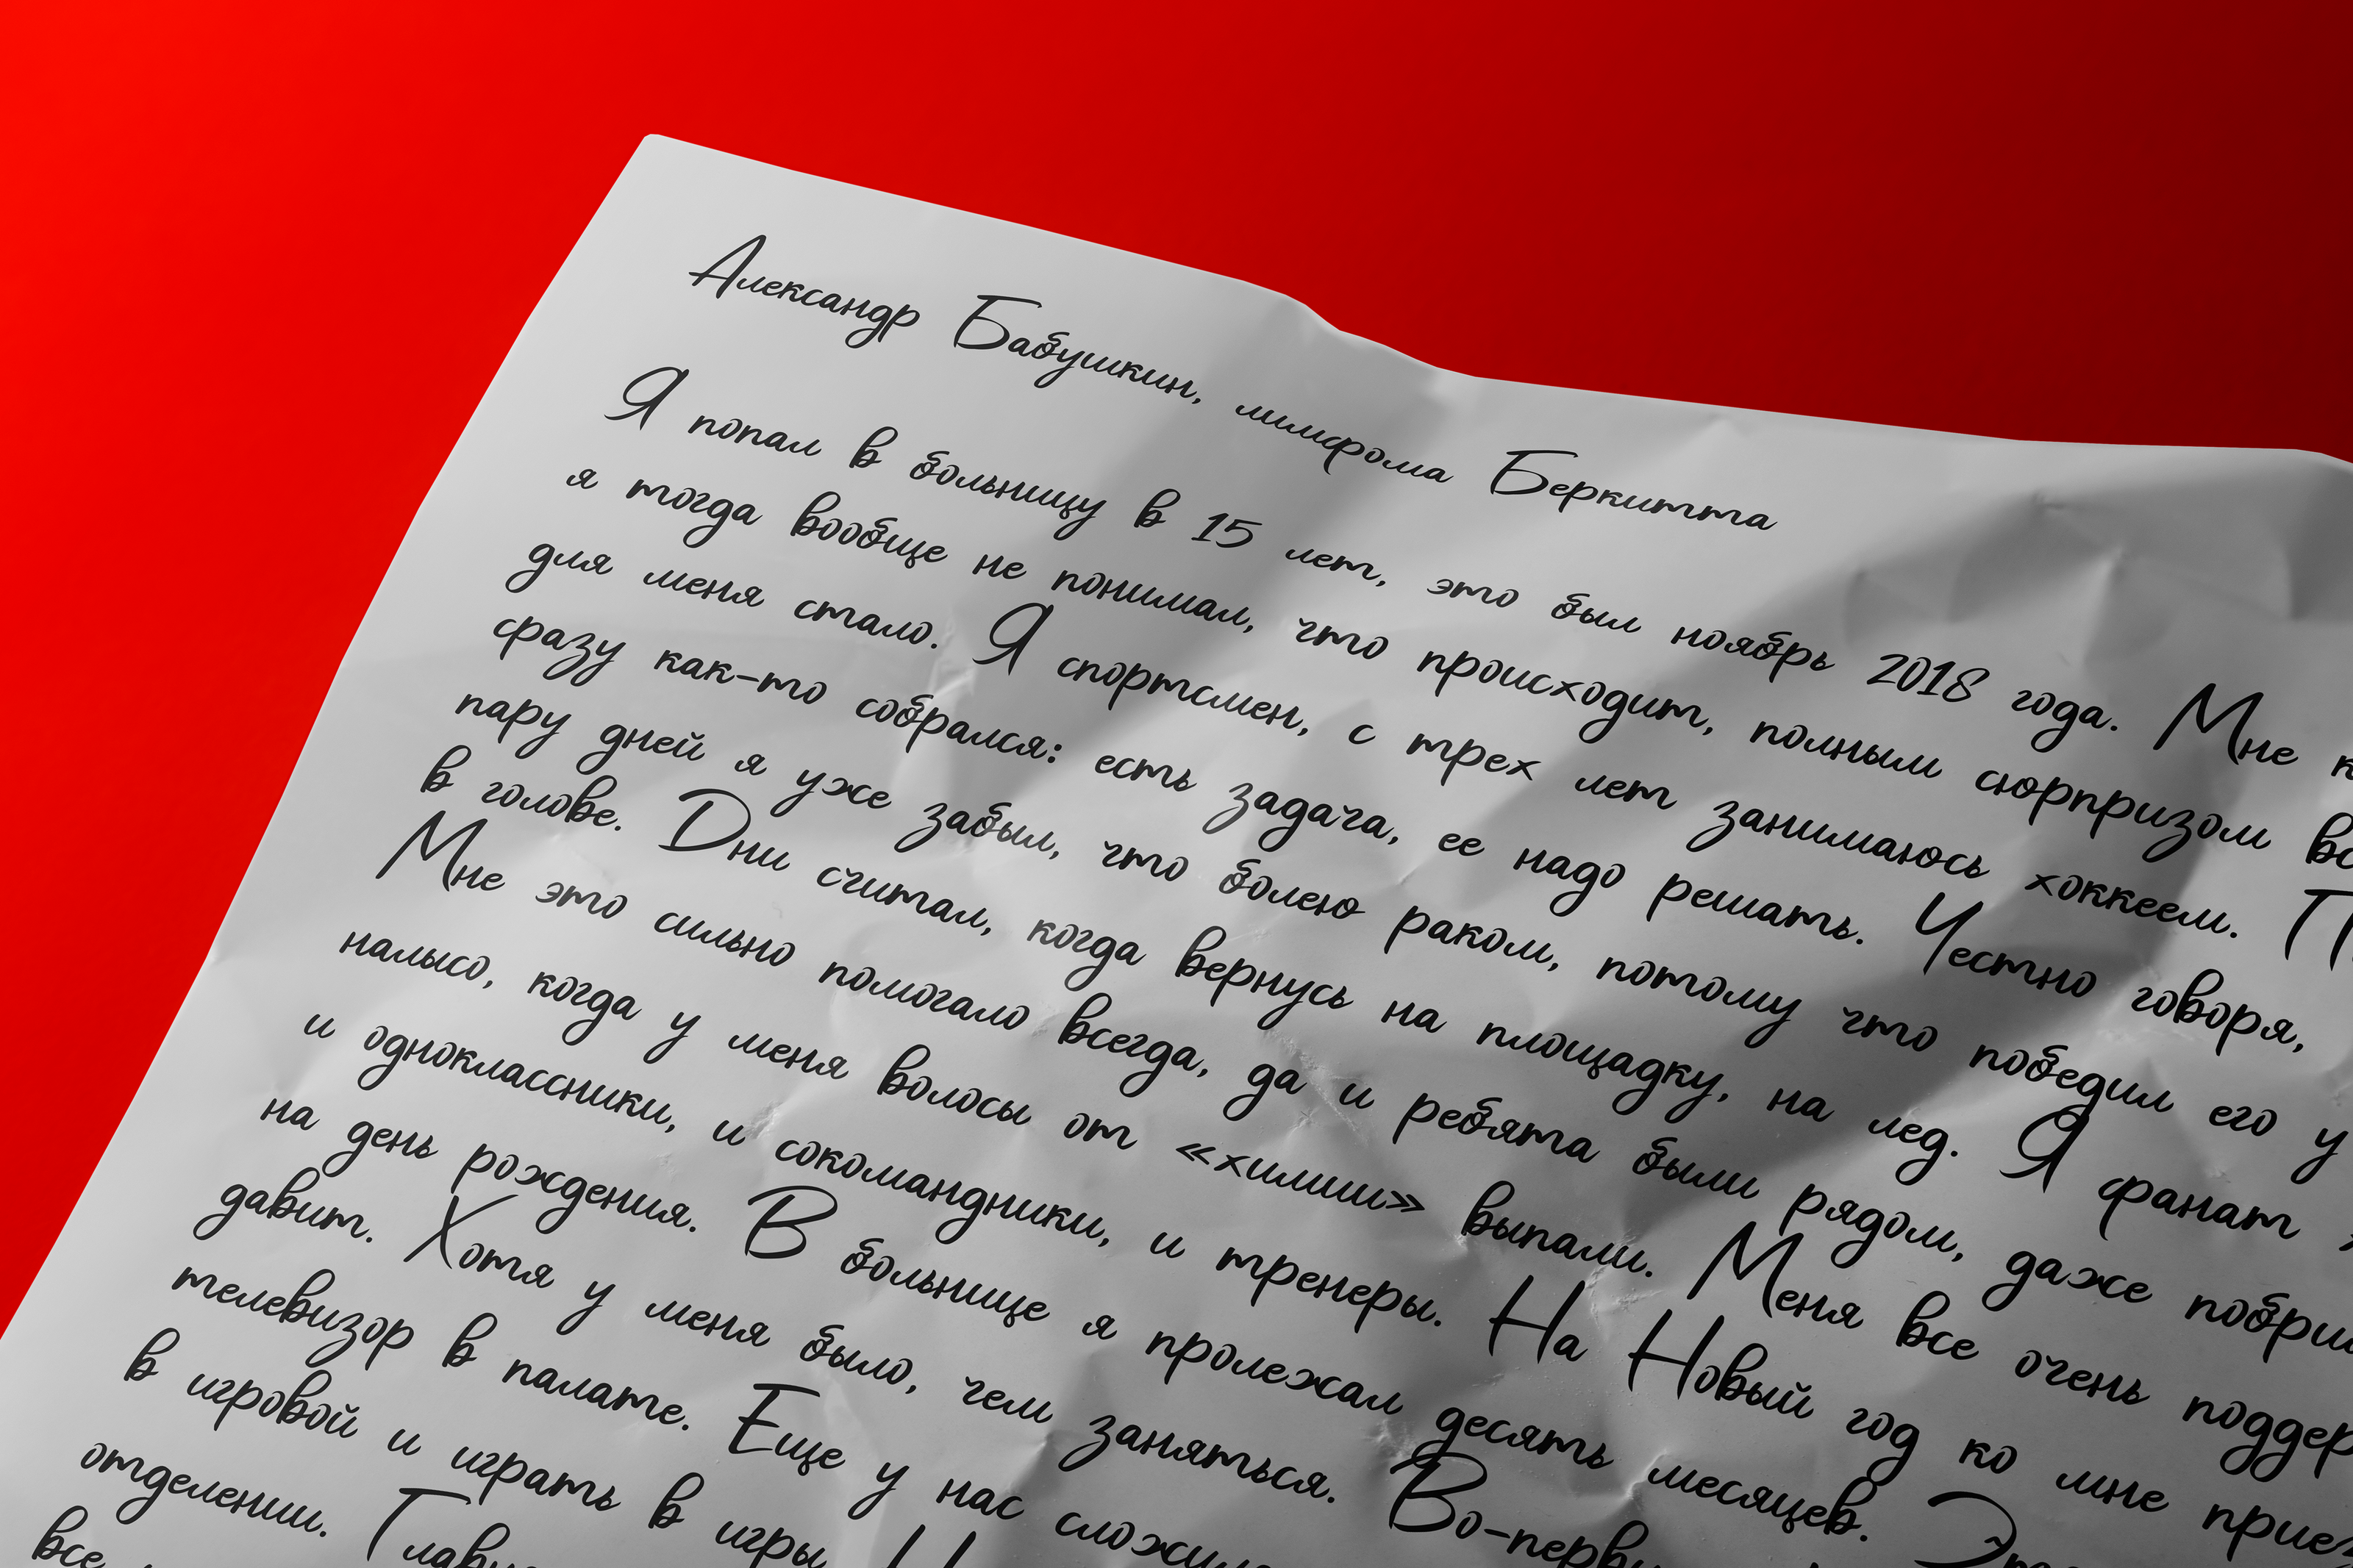 Александр Бабушкин, лимфома Беркитта
Я попал в больницу в 15 лет, это был ноябрь 2018 года. Мне
я тогда вообще не понимал, что происходит, полным сюрпризом вс
для меня стало. Я спортсмен, с трех лет занимаюсь хоккеем. П
сразу как-то собрался: есть задача, ее надо решать. Честно говоря,
пару дней я уже забыл, что болею раком, потому что победил его у
в голове. Дни считал, когда вернусь на площадку, на лед. Я фанат
Мне это сильно помогало всегда, да и ребята были рядом, даже побри
налысо, когда у меня волосы от «химии» выпали. Меня все очень поддер
и одноклассники, и сокомандники, и тренеры. На Новый год ко мне приез
на день рождения. В больнице я пролежал десять месяцев. Это
давит. Хотя у меня было, чем заняться. Во-первы
телевизор в палате. Еще у нас сложил
в игровой и играть в игры. Н
отделении. Главн
все